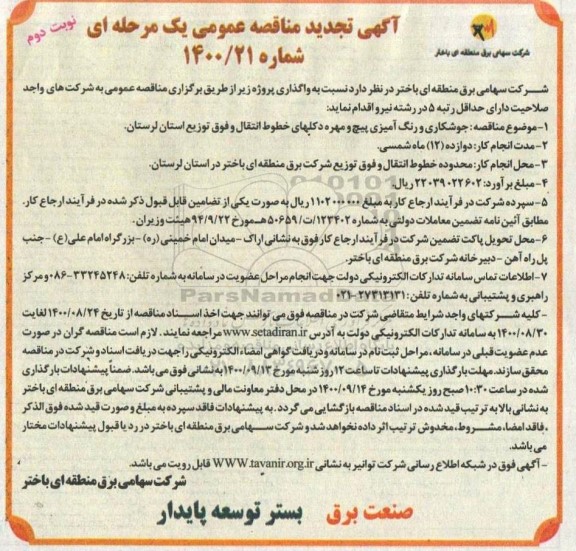 آگهی تجدید مناقصه عمومی یک مرحله ای
شماره ۱۴۰۰/۲۱
نوبت دوم
شرکت سهامی برق منطقه ای باختر
شرکت سهامی برق منطقه ای باختر در نظر دارد نسبت به واگذاری پروژه زیر از طریق برگزاری مناقصه عمومی به شرکت های واجد
صلاحیت دارای حداقل رتبه ۵ در رشته نیرو اقدام نماید:
۱-موضوع مناقصه: جوشکاری و رنگ آمیزی پیچ و مهره دکلهای خطوط انتقال و فوق توزیع استان لرستان.
۲-مدت انجام کار: دوازده (۱۲) ماه شمسی.
۳- محل انجام کار: محدوده خطوط انتقال و فوق توزیع شرکت برق منطقه ای باختر در استان لرستان.
۴- مبلغ برآورد: ۲۲۰۳۹۰۲۲۶۰۲ ریال.
۵- سپرده شرکت در فرآیند ارجاع کار به مبلغ ۱۱۰۲۰۰۰۰۰۰ ریال به صورت یکی از تضامین قابل قبول ذکر شده در فرآیند ارجاع کار.
مطابق آئین نامه تضمین معاملات دولتی به شماره ۱۲۳۴۰۲/ت/۵۰۶۵۹ هـ مورخ ۹۴/۹/۲۲ هیئت وزیران.
۶-محل تحویل پاکت تضمین شرکت در فرآیند ارجاع کار فوق به نشانی اراک - میدان امام خمینی (ره) -بزرگراه امام علی (ع) - جنب
پل راه آهن - دبیرخانه شرکت برق منطقه ای باختر.
۷-اطلاعات تماس سامانه تدارکات الکترونیکی دولت جهت انجام مراحل عضویت در سامانه به شماره تلفن: ۳۳۲۴۵۲۴۸-۰۸۶ و مرکز
راهبری و پشتیبانی به شماره تلفن: ۲۷۳۱۳۱۳۱-۰۲۱
- کلیه شرکتهای واجد شرایط متقاضی شرکت در مناقصه فوق می توانند جهت اخذ اسناد مناقصه از تاریخ ۱۴۰۰/۰۸/۲۴ لغایت
۱۴۰۰/۰۸/۳۰ به سامانه تدارکات الکترونیکی دولت به آدرس www.setadiran.ir مراجعه نمایند. لازم است مناقصه گران در صورت
عدم عضویت قبلی در سامانه، مراحل ثبت نام در سامانه و دریافت گواهی امضاء الکترونیکی را جهت دریافت اسناد و شرکت در مناقصه
محقق سازند. مهلت بارگذاری پیشنهادات تا ساعت ۱۲ روز شنبه مورخ ۱۴۰۰/۰۹/۱۳ به نشانی فوق می باشد. ضمناً پیشنهادات بارگذاری
شده در ساعت ۱۰:۳۰ صبح روز یکشنبه مورخ ۱۴۰۰/۰۹/۱۴ در محل دفتر معاونت مالی و پشتیبانی شرکت سهامی برق منطقه ای باختر
به نشانی بالا به ترتیب قید شده در اسناد مناقصه بازگشایی می گردد. به پیشنهادات فاقد سپرده به مبلغ و صورت قید شده فوق الذکر
، فاقد امضا، مشروط، مخدوش ترتیب اثر داده نخواهد شد و شرکت سهامی برق منطقه ای باختر در رد یا قبول پیشنهادات مختار
می باشد.
- آگهی فوق در شبکه اطلاع رسانی شرکت توانیر به نشانی WWW.tavanir.org.ir قابل رویت می باشد.
شرکت سهامی برق منطقه ای باختر
صنعت برق بستر توسعه پایدار